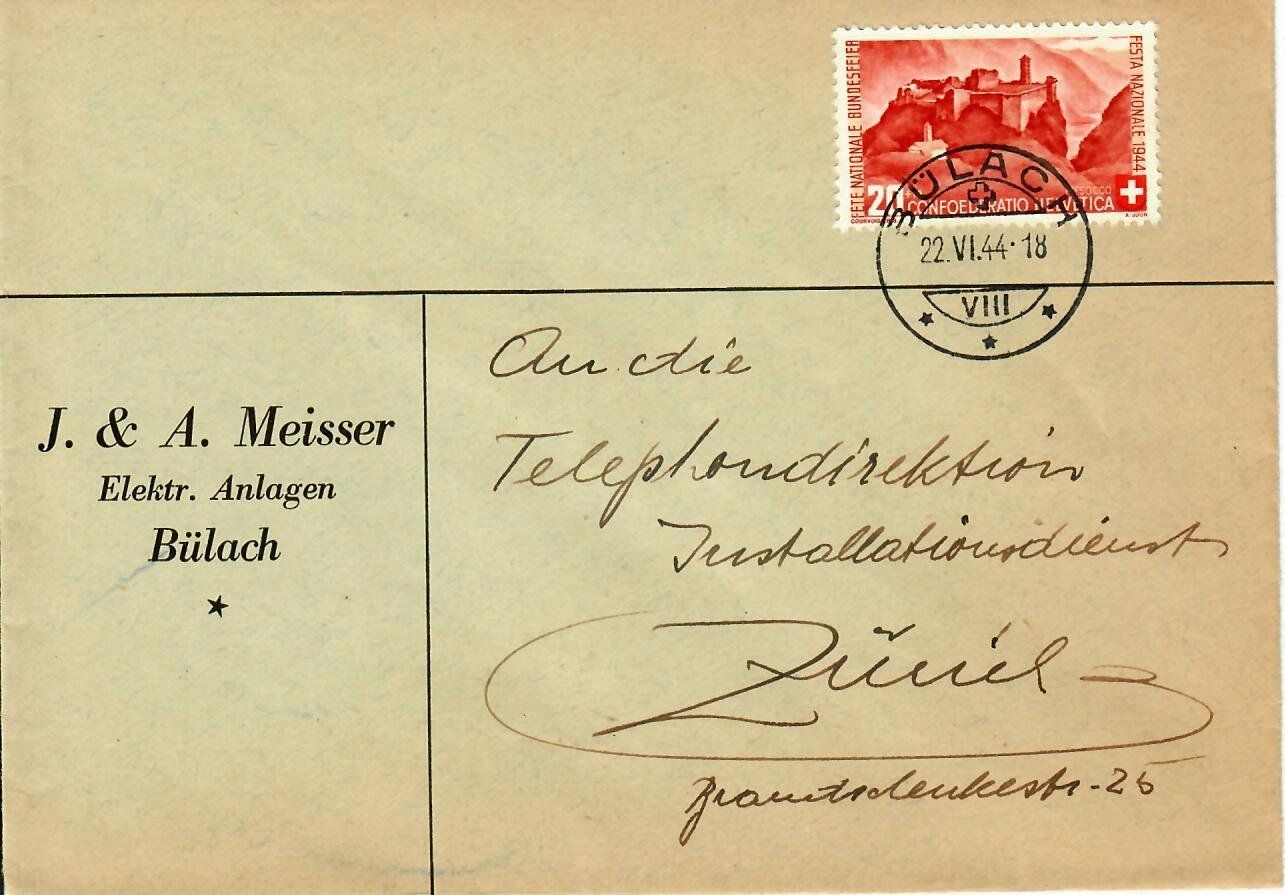 FETE NATIONALE BUNDESFEIER
FESTA NAZIONALE 1944
20
CONFOEDERATIO HELVETICA
COURVOISIER
A. JUON
BÜLACH
22.VI.44·18
VIII
J. & A. Meisser
Elektr. Anlagen
Bülach
An die
Telephondirektion
Installationsdienst
Zürich
25